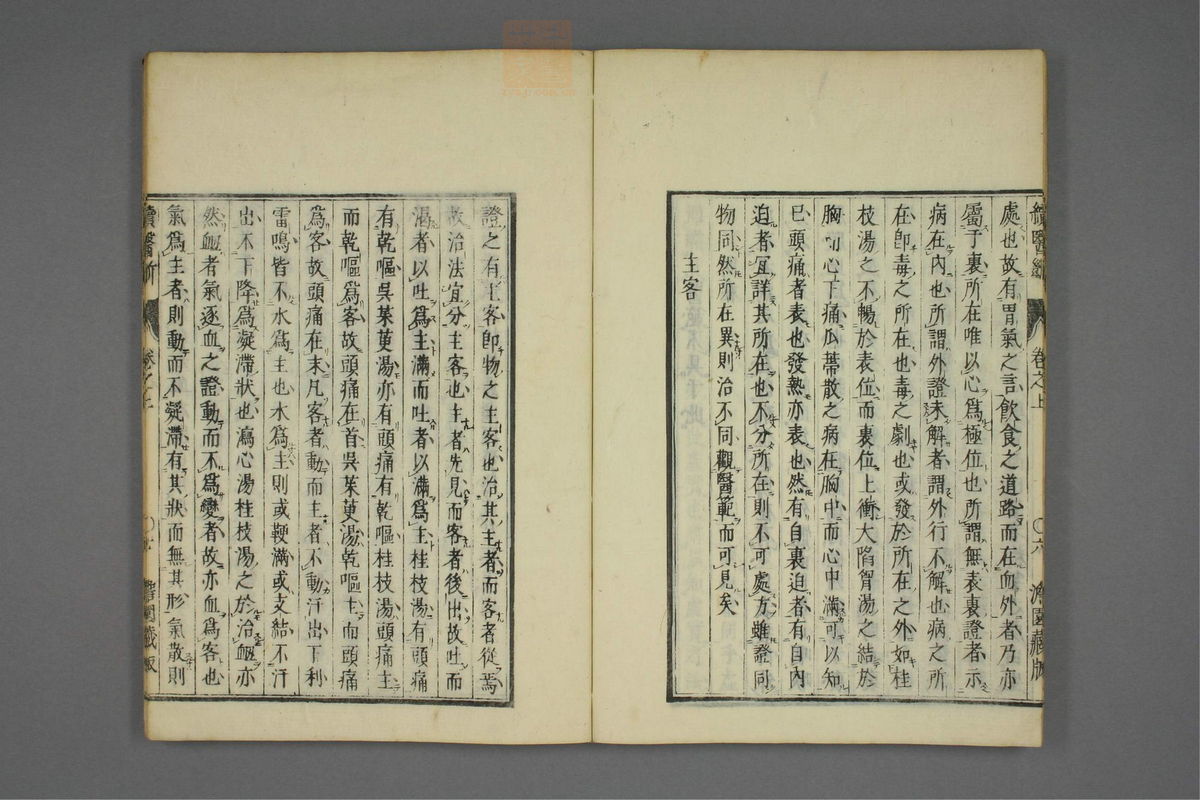 處也故有胃氣之言飮食之道路而在血外者乃亦
屬于裏所在唯以心爲極位也所謂無表裏證者示
病在內也所謂外證未解者謂外行不解也病之所
在卽毒之所在也毒之劇也或發於所在之外如桂
枝湯之不暢於表位而裏位上衝大陷胷湯之結於
胸而心下痛瓜蒂散之病在胸中而心中滿可以知
已頭痛者表也發熱亦表也然有自裏迫者有自內
迫者宜詳其所在也不分所在則不可處方雖證同
物同然所在異則治不同觀醫範而可見矣
主客
續醫斷
卷之上
〇六
證之有主客卽物之主客也治其主者而客者從焉
故治法宜分主客也主者先見而客者後出故吐而
渴者以吐爲主滿而吐者以滿爲主桂枝湯有頭痛
有乾嘔吳茱萸湯亦有頭痛有乾嘔桂枝湯頭痛主
而乾嘔爲客故頭痛在首吳茱萸湯乾嘔主而頭痛
爲客故頭痛在末凡客者動而主者不動汗出下利
雷鳴皆不水爲主也水爲主則或鞕滿或支結不汗
出不下降爲凝滯狀也瀉心湯桂枝湯之於治衄亦
然衄者氣逐血之證動而不爲變者故亦血爲客也
氣爲主者則動而不凝滯有其狀而無其形氣散則
卷之上